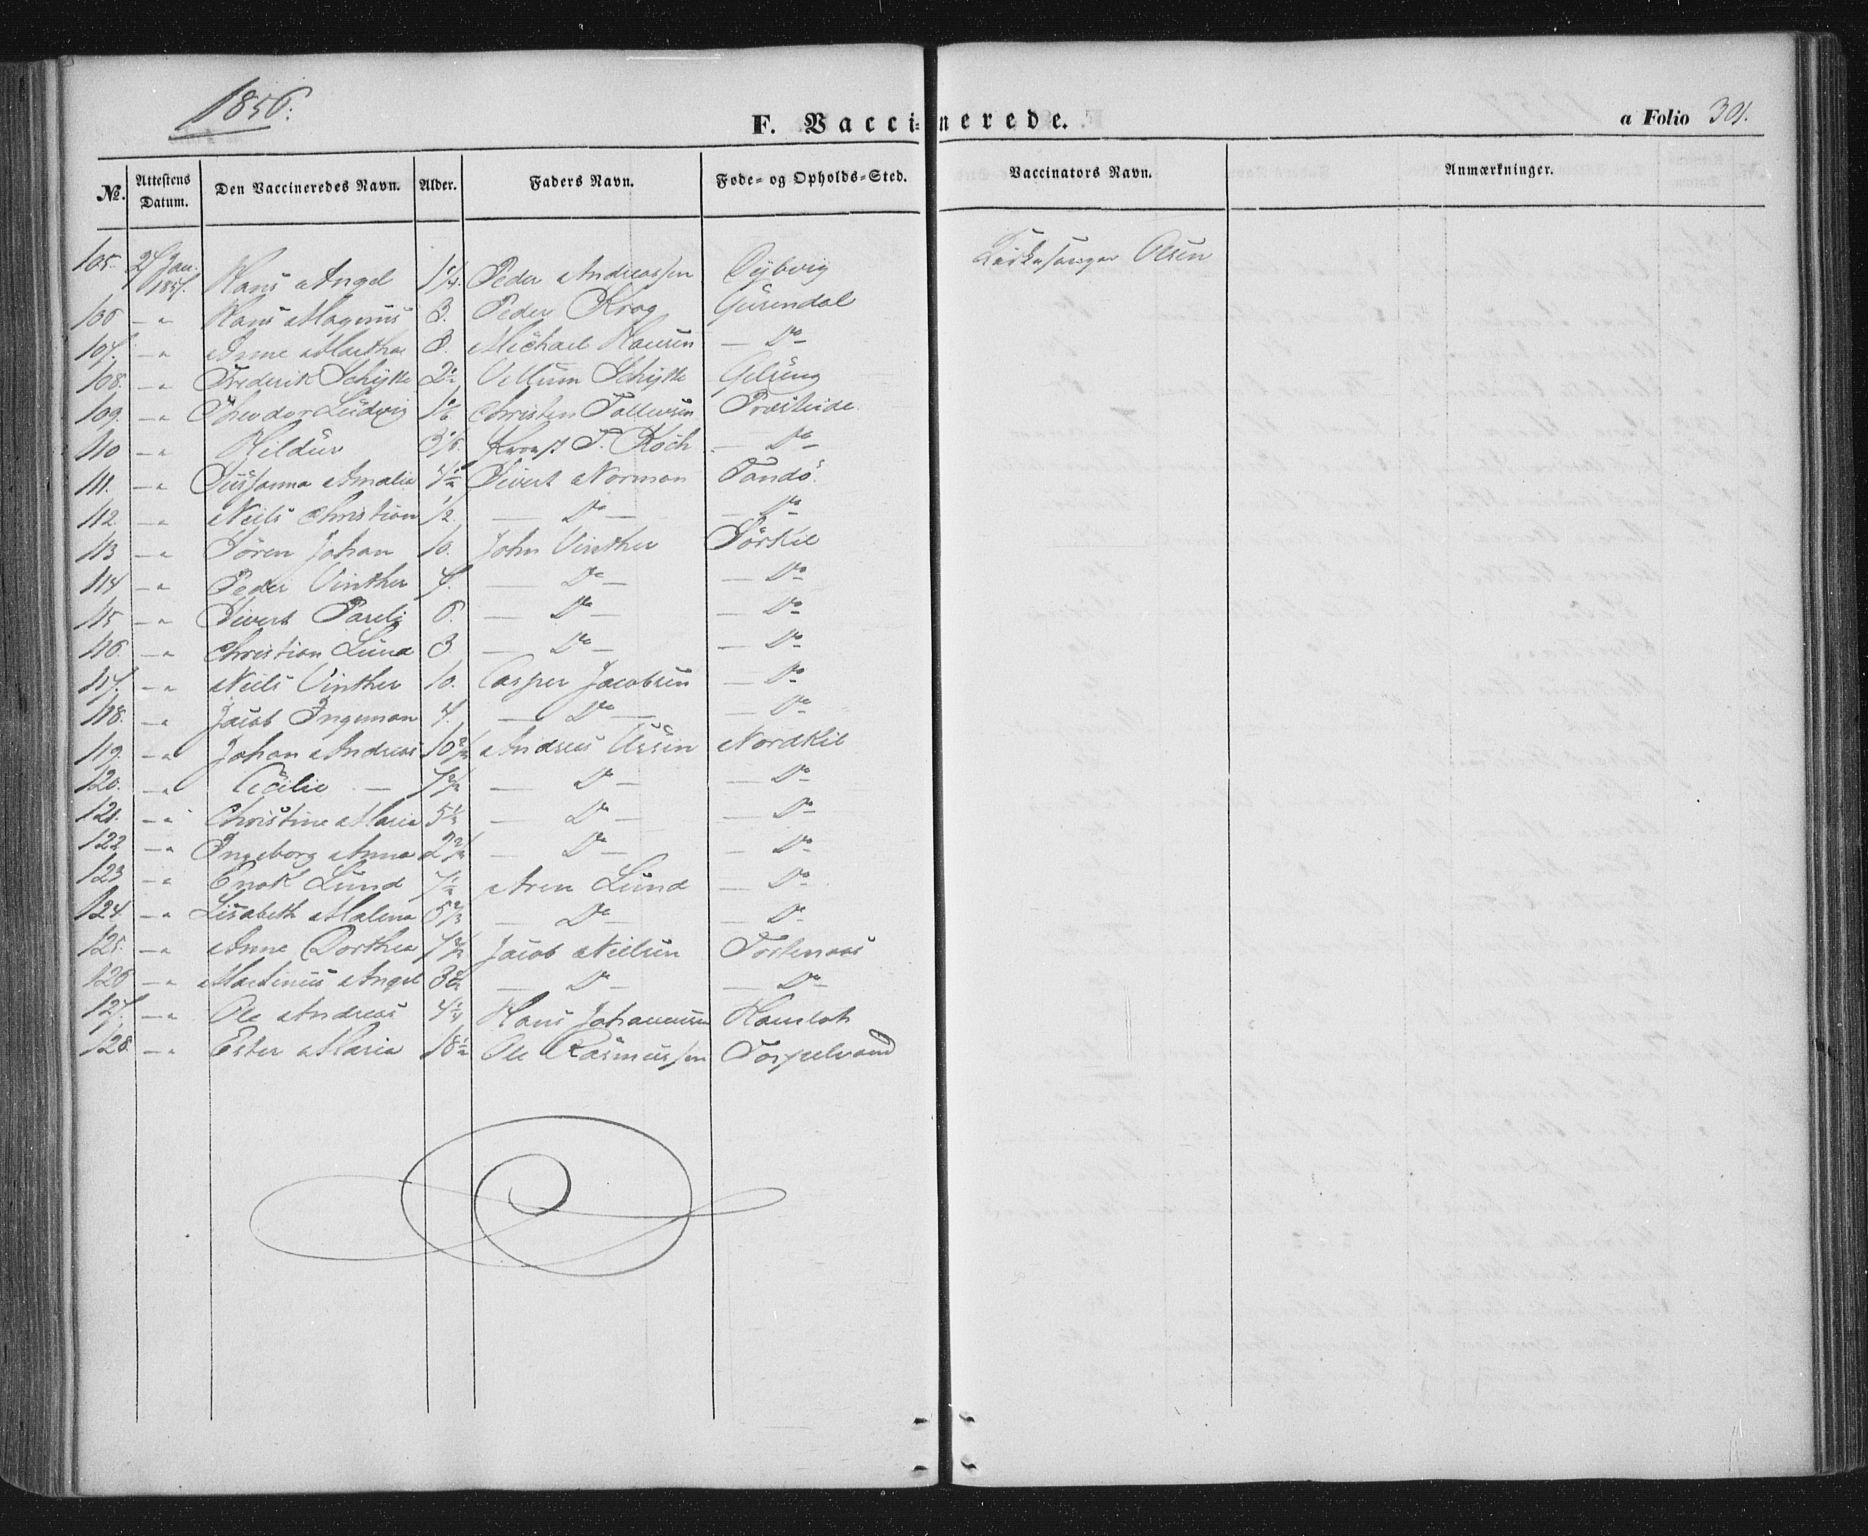 1856.
F. Vaccinerede.
a Folio 301.
№. Attestens Datum. Den Vaccineredes Navn. Alder. Faders Navn. Føde- og Opholds-Sted. Vaccinators Navn. Anmærkninger.
105. 27 Jan. 1857. Hans Angel 1¼ Peder Andreassen Dybvig Kirkesanger Olsen
106 — " Hans Magnus 3. Peder Krog Gürendal
107. — " Anne Martha 8. Michael Hansen — Do —
108. — " Frederik Schytte 2½ Villum Schytte
109. — " Theodor Ludvig Christen Tollevsen Præsteide.
110 — " Hildur Koch — Do —
111. — " Sussanna Amalia 4½ Sivert Norman Tandö.
112 — " Neils Christian ½. — Do — — Do —
113 — " Sören Johan 10. John Vinther Sörkil
114 — " Peder Vinther 7. — Do — — Do —
115 — " Sivert Parelj 6. — Do — — Do —
116. — " Christian Lund 3. — Do — — Do —
117. — " Neils Vinther 10. Casper Jacobsen — Do —
118. — " Jacob Ingeman 4. — Do — — Do —
119. — " Johan Andreas 10 Andreas Nordkil
120. — " Cecilie — 7 — Do — — Do —
121. — " Christine Maria 5½ — Do — — Do —
122 — " Ingeborg Anna 2 — Do — — Do —
123 — " Enok Lund 7½ Aren Lund — Do —
124. — " Lisabeth Malena 5 — Do — — Do —
125. — " Anne Dorthea 7 Jacob Neilsen Tortenaas
126 — " Martinus Angel 3 — Do — — Do —
127. — " Ole Andreas 4¼ Hans Johannesen Hamloh
128. — " Ester Maria 18½ Ole Rasmussen Torpelvand